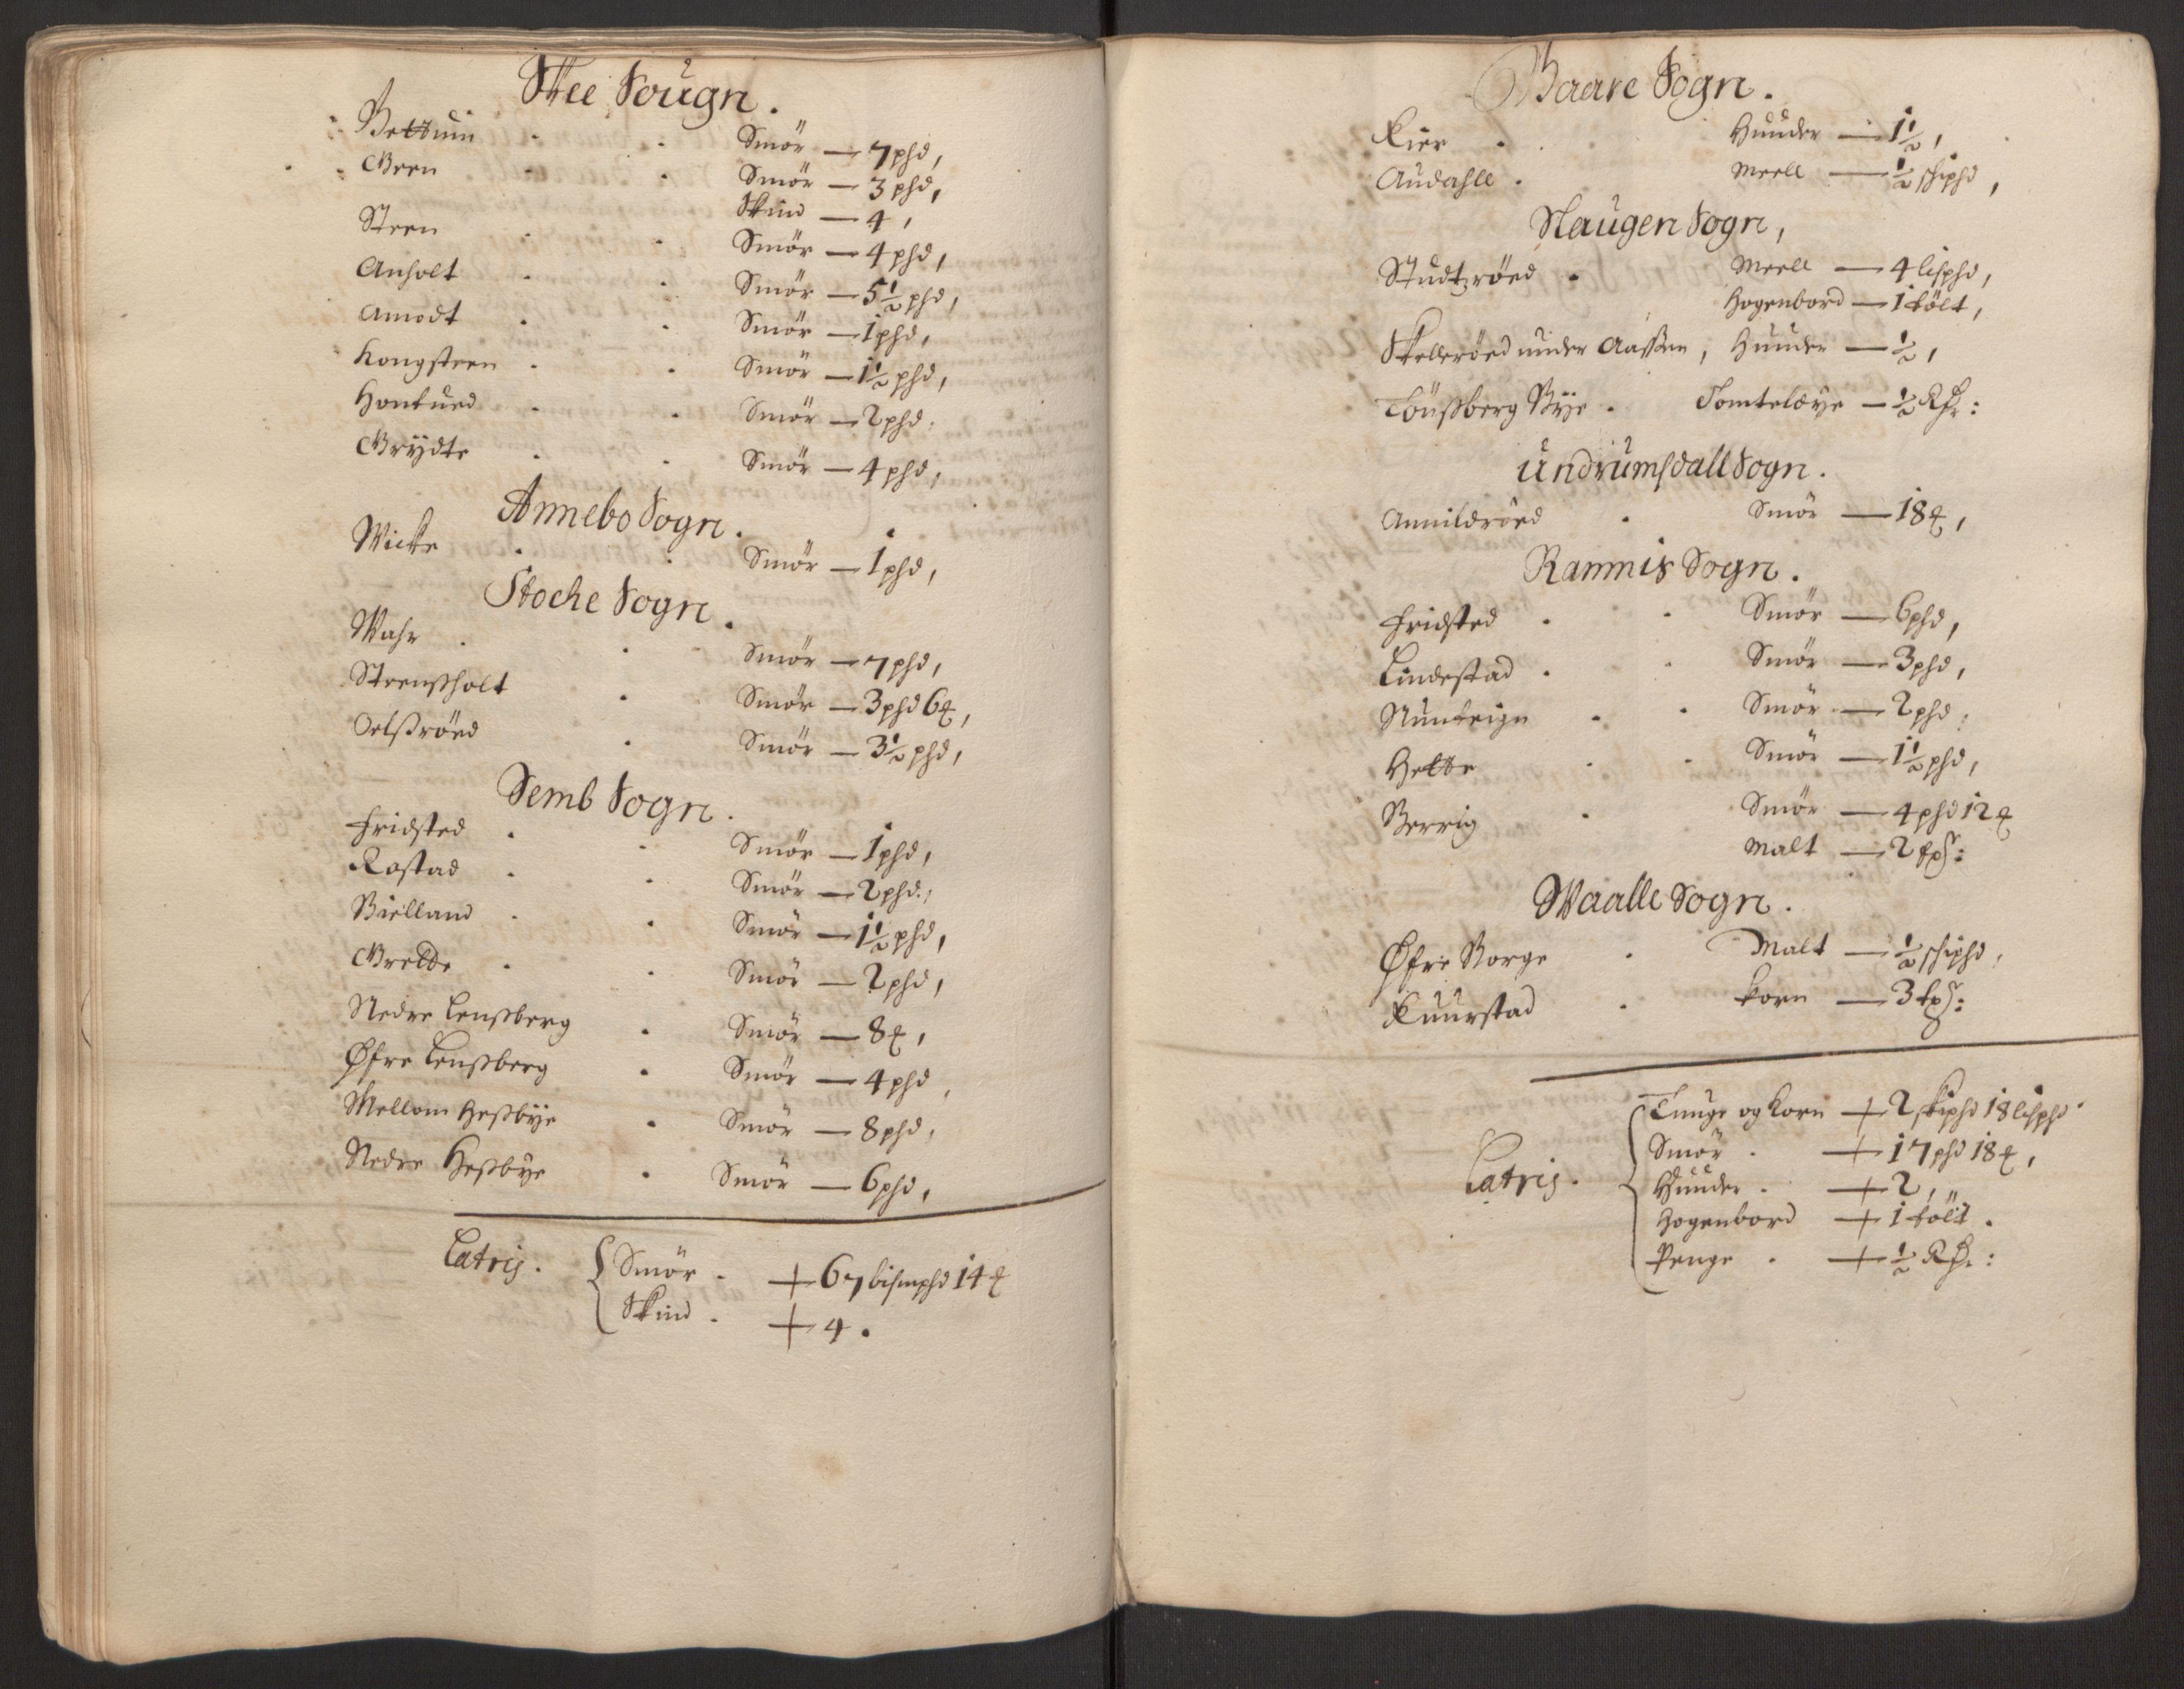 Skee Sougn.
Bettum . . Smör — 7 phd,
Green . . Smör — 3 phd,
Skind — 4,
Steen . . Smör — 4 phd,
Anholt . . Smör — 5½ phd,
Amodt . . Smör — 1 phd,
Kongsteen . . Smör — 1½ phd,
Hontued . . Smör — 2 phd.
Grydte . . Smör — 4 phd,
Annebo Sogn.
Wicke . . Smör — 1 phd,
Stoche Sogn.
Wahr . . Smör — 7 phd,
Strengsholt . Smör — 3 phd 6 ℔,
Oelsröed . Smör — 3½ phd,
Semb Sogn.
Fridsted . . Smör — 1 phd,
Rostad . . Smör — 2 phd.,
Bielland . . Smör — 1½ phd,
Gretde . . Smör — 2 phd,
Nedre Lensberg . Smör — 8 ℔,
Øfre Lensberg . Smör — 4 phd,
Mellom Hesbÿe . Smör — 8 phd,
Nedre Hesbÿe . Smör — 6 phd,
Latris. Smör . + 67 bismphd 14 ℔
Skind . + 4.
Baare Sogn.
Kier . . Huuder — 1½,
Audahll . Meell — ½ schiphd,
Slaugen Sogn,
Studtzröed . Meell — 4 lisphd,
Hogenbord — 1 tölt,
Skelleröed under Aassen, Huuder — ½,
Tönsberg Bÿe . Tomteleÿe — ½ Rdr:
Undrumsdall Sogn.
Amildröed . Smör — 18 ℔,
Ramnis Sogn.
Fridsted . . Smör — 6 phd,
Lindestad . . Smör — 3 phd,
Nunteign . . Smör — 2 phd,
Hette . . Smör — 1½ phd,
Berrig . Smör — 4 phd 12 ℔
Malt — 2 spr:
Waalle Sogn.
Øfre Borge . Malt — ½ schiphd,
Kuurstad . Korn — 3 spr:
Latris. Tunge og Korn + 2 skiphd 18 lisphd
Smör . + 17 phd 18 ℔,
Huuder . + 2,
Hogenbord + 1 tölt.
Penge . + ½ Rdr: